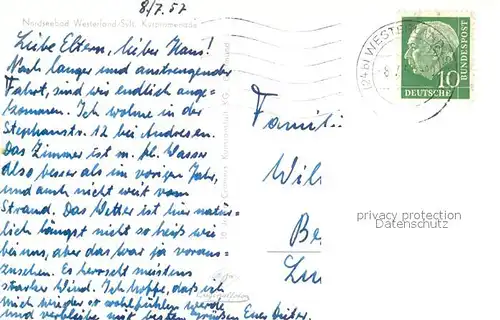 8/7.57
Nordseebad Westerland/Sylt, Kurpromenade
Liebe Eltern, lieber Hans!
Nach langer und anstrengender
Fahrt, sind wir endlich ange-
kommen. Ich wohne in der
Stephanstr. 12 bei Andresen.
Das Zimmer ist m. fl. Wasser
also besser als im vorigen Jahr,
und auch nicht weit vom
Strand. Das Wetter ist hier natür-
lich längst nicht so heiß wie
bei uns, aber das war ja voraus-
zusehen. Es herrscht meistens
starker Wind. Ich hoffe, daß ich
mich wieder so wohlfühlen werde
und verbleibe mit besten Grüßen Euer Dieter.
(24b) WESTER
8.7
DEUTSCHE
BUNDESPOST
10
Famili
Wil
Be
Lu
privacy protection
Datenschutz